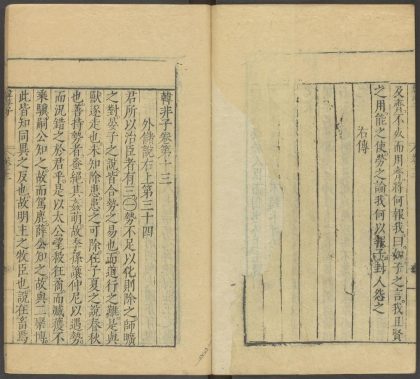 及齊不死而用齊將何報我曰如子之言我且賢
之用能之使勞之論我何以報子封人怨之
右傳
韓非子卷第十三
外儲說右上第三十四
君所以治臣者有三㊀勢不足以化則除之師曠
之對晏子之說皆合勢之易也而道行之難是與
獸逐走也未知除患患之可除在子夏之說春秋
也善持勢者蚤絕其姦萌故季孫讓仲尼以遇勢
而況錯之於君乎是以太公望殺狂矞而臧獲不
乘驥嗣公知之故而駕鹿薛公知之故與二欒博
此皆知同異之反也故明主之牧臣也說在畜烏